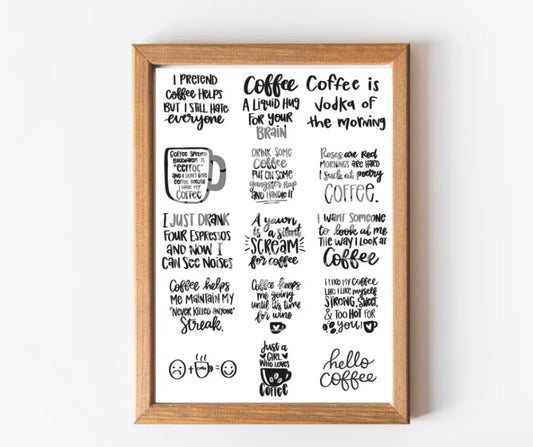 I PRETEND
Coffee HELPS
BUT I STILL HATE
everyone
Coffee
A LIQUID HUG
FOR YOUR
BRAIN
Coffee is
Vodka of
the morning
COFFEE SPELLED
BACKWARDS IS
AND I DON'T GIVE
I HAVE MY
COFFEE
DRINK SOME
Coffee
PUT ON SOME
gangster Rap
AND HANDLE IT
Roses are Red
MORNINGS ARE HARD
I Suck at poetry
COFFEE.
I JUST DRANK
FOUR ESPRESSOS
AND NOW I
CAN SEE NOISES
A yawn
is a silent
SCREAM
for coffee
I WANT SOMEONE
to look at me
THE WAY I LOOK AT
Coffee
Coffee helps
ME MAINTAIN MY
"NEVER KILLED ANYONE"
Streak.
Coffee keeps
me going
until its time
for wine
I LIKE MY COFFEE
LIKE I LIKE myself
STRONG, SWEET,
& TOO HOT FOR
YOU!
+ =
Just a
GIRL
WHO LOVES
Coffee
hello
COFFEE